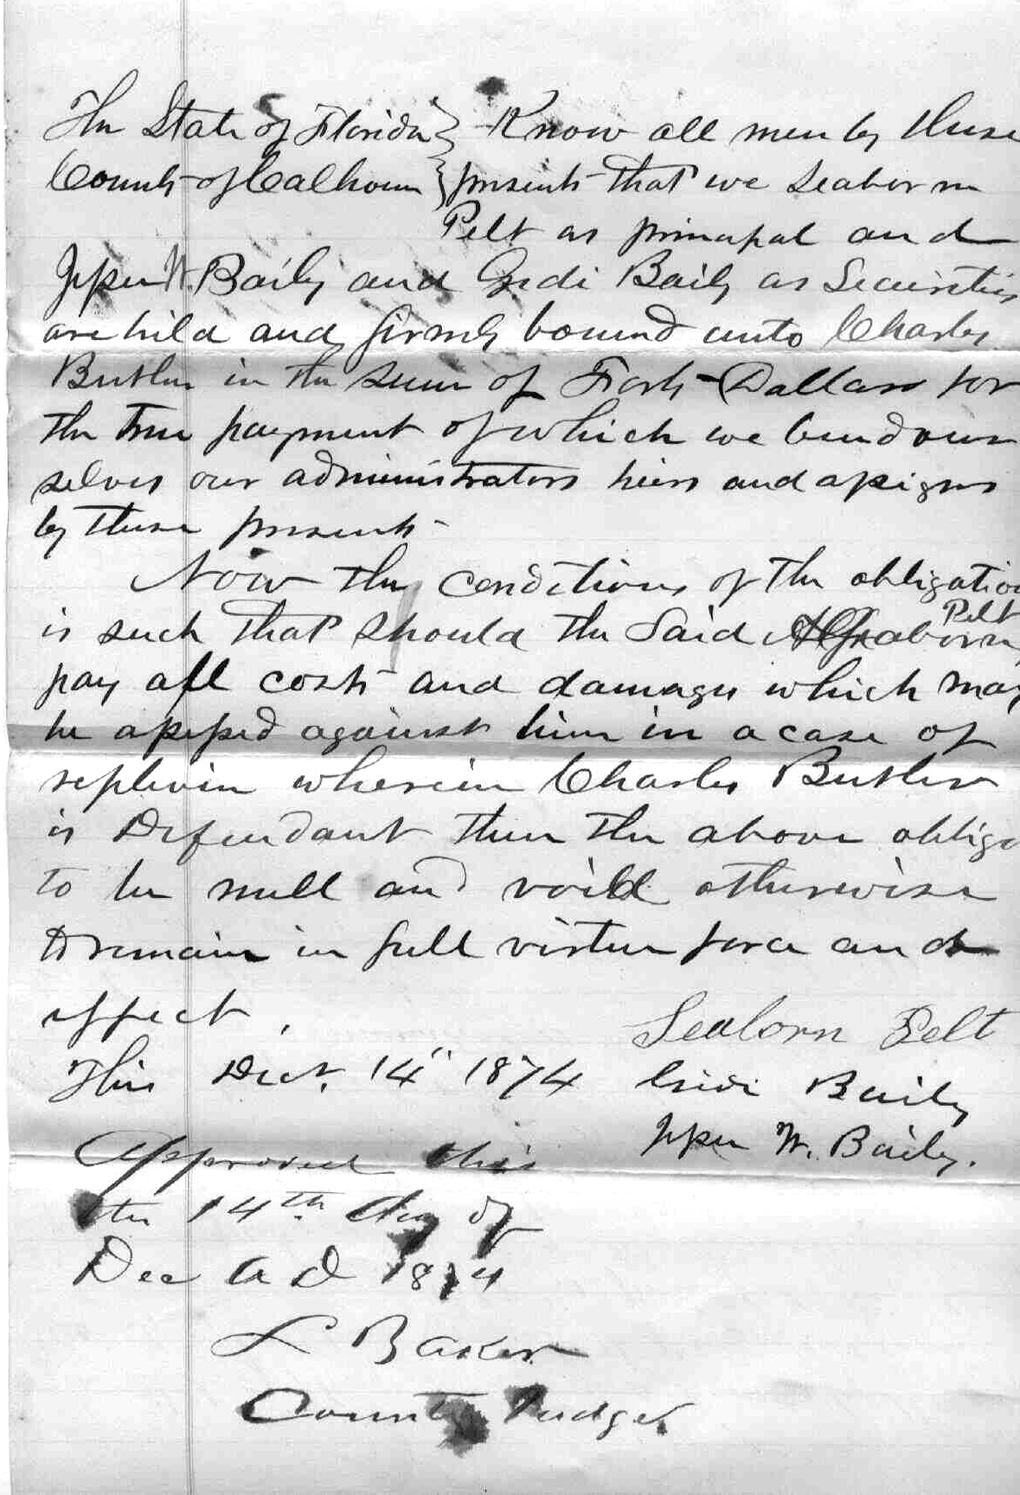 The State of Florida } Know all men by these
County of Calhoun } presents that we Seaborn
Pelt as principal and
W. Baily and Baily as Securities
are held and firmly bound unto Charles
Butler in the sum of Forty Dollars for
the true payment of which we bind our
selves our administrators heirs and assigns
by these presents
Now the conditions of the obligation
is such that should the Said Seaborn Pelt
pay all costs and damages which may
be assessed against him in a case of
replevin wherein Charles Butler
is Defendant then the above oblig
to be null and void otherwise
to remain in full virtue force and
effect.
Seaborn Pelt
This Dect. 14" 1874 Baily
W. Baily.
Approved this
the 14th day of
Dec A D 1874
L Baker
County Judge